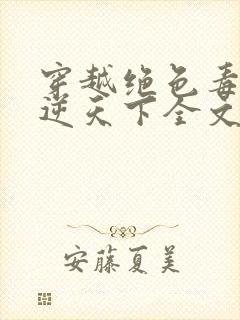 穿越绝色毒
逆天下全文
安藤夏美